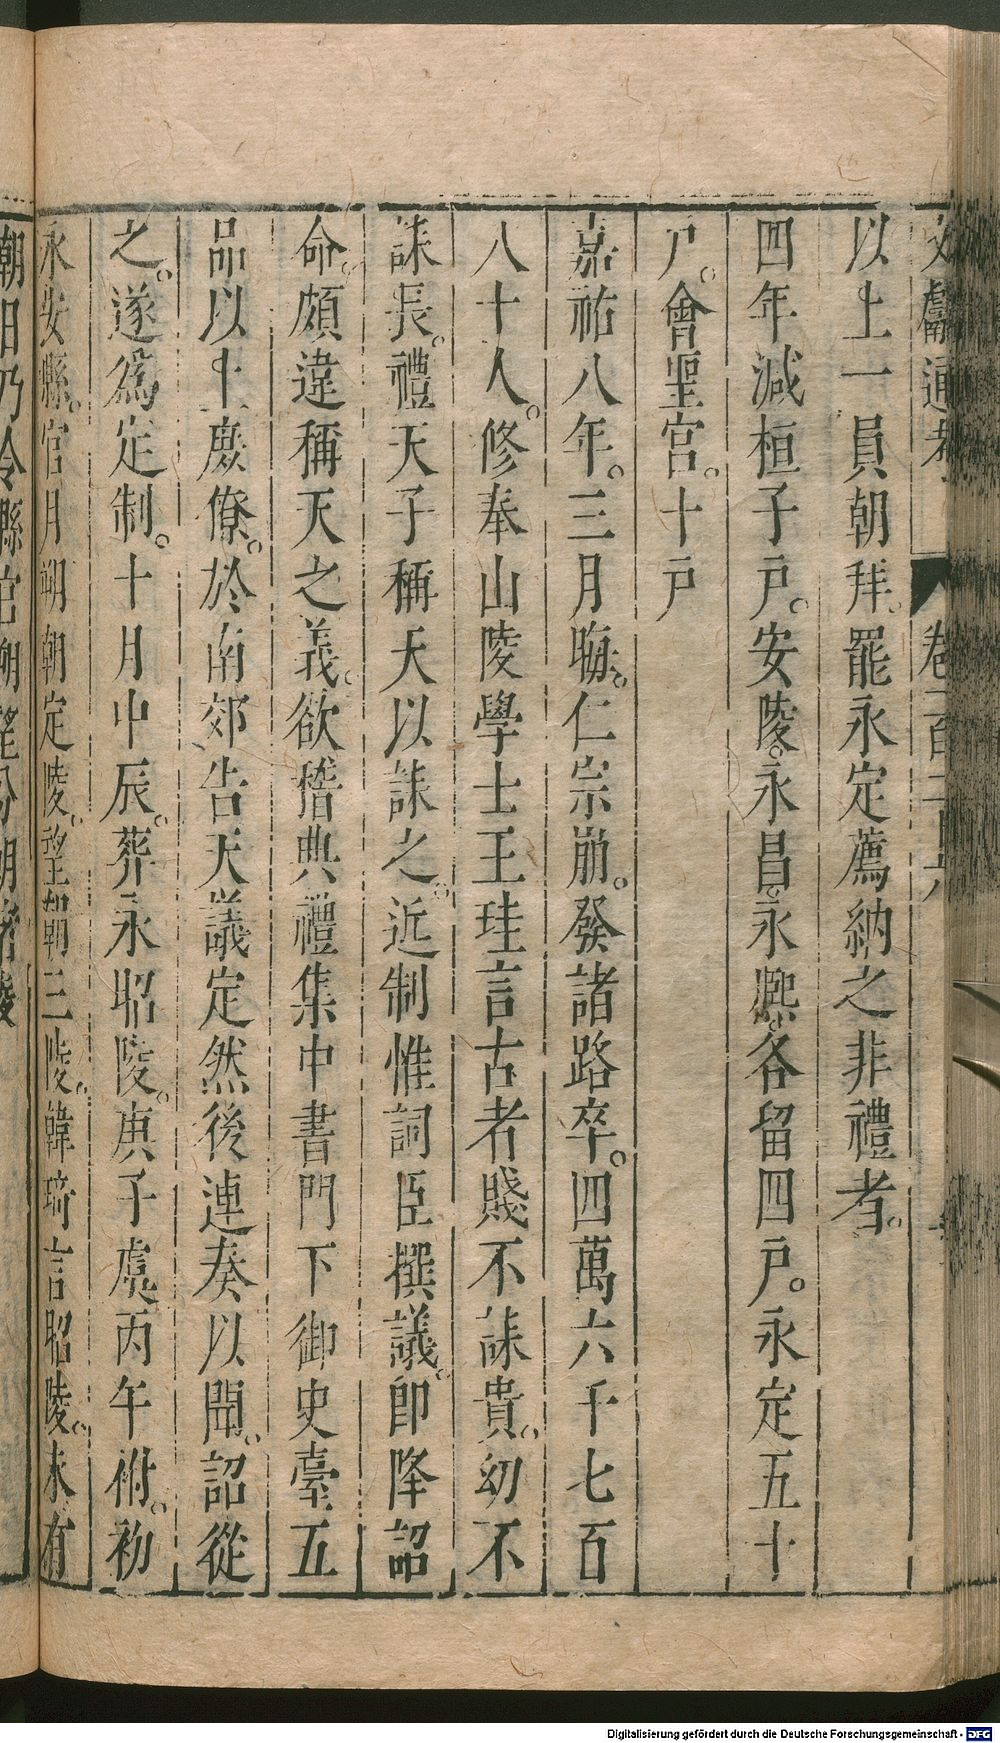 文獻通考 卷一百二十六
以上一員朝拜。罷永定薦納之非禮者。
四年減桓子戶。安陵。永昌。永熙。各留四戶。永定五十
戶。會聖宮。十戶
嘉祐八年。三月晦。仁宗崩。發諸路卒。四萬六千七百
八十人。修奉山陵學士王珪言古者賤不誄貴。幼不
誄長。禮天子稱天以誄之。近制惟詞臣撰議。即降詔
命。頗違稱天之義。欲稽典禮集中書門下御史臺五
品以上庶僚。於南郊告天議定然後連奏以聞。詔從
之。遂爲定制。十月甲辰。葬永昭陵。庚子虞丙午祔。初
永安縣。官月朔朝定陵。望朝三陵。韓琦言昭陵。未有
朝日乃令縣官朔望分朝諸陵
Digitalisierung gefördert durch die Deutsche Forschungsgemeinschaft - DFG